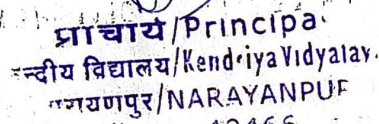 प्राचार्य/Principa
न्दीय विद्यालय/Kendriya Vidyalay.
रायणपुर/NARAYANPUR